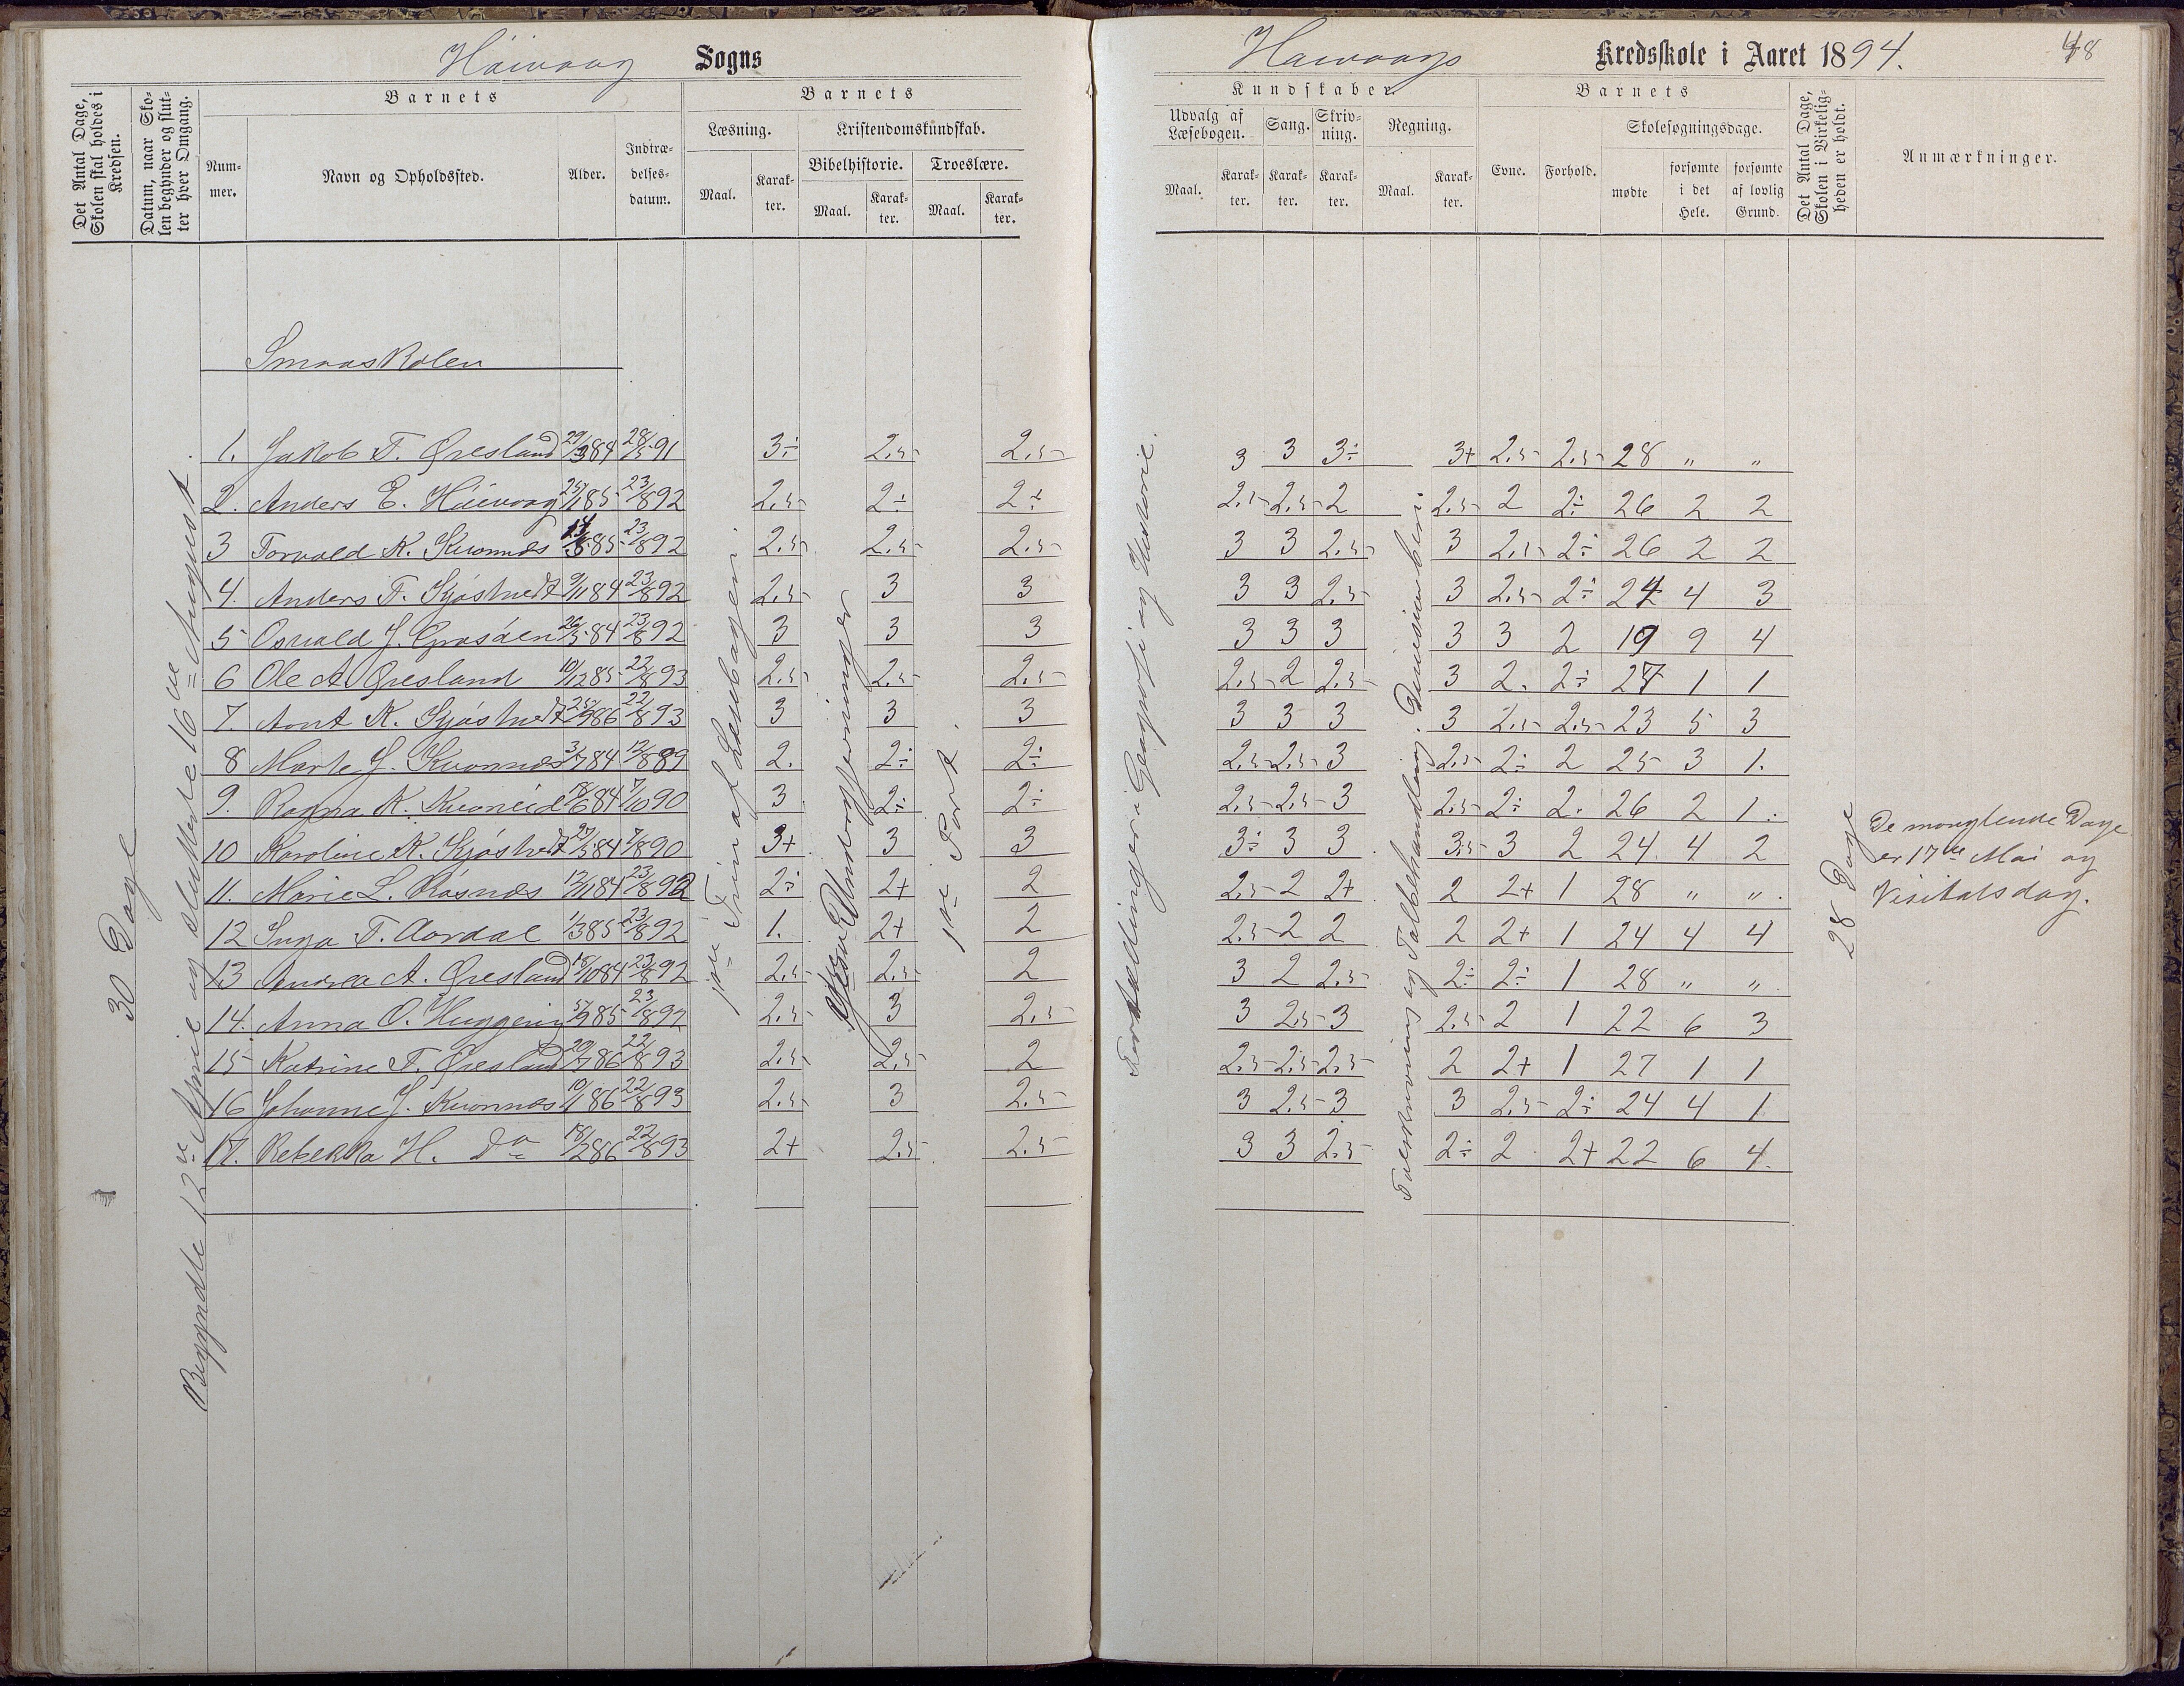 Sogns
Kredsskole i Aaret 1894.
48
Det Antal Dage, Skolen skal holdes i Kredsen.
Datum, naar Skolen begynder og slutter hver Omgang.
Barnets
Nummer.
Navn og Opholdssted.
Alder.
Indtrædelsesdatum.
Barnets
Læsning.
Maal.
Karakter.
Kristendomskundskab.
Bibelhistorie.
Maal.
Karakter.
Troeslære.
Maal.
Karakter.
Kundskaber.
Udvalg af Læsebogen.
Maal.
Karakter.
Sang.
Karakter.
Skrivning.
Karakter.
Regning.
Maal.
Karakter.
Barnets
Evne.
Forhold.
Skolesøgningsdage.
mødte
forsømte i det Hele.
forsømte af lovlig Grund.
Det Antal Dage, Skolen i Virkeligheden er holdt.
Anmærkninger.
Smaaskolen
30 Dage
1. Jakob T. Øresland 29/3 84 28/5 91 3÷ 2,5 2,5 3 3 3÷ 3+ 2,5 2,5 28 " "
2. Anders E. 85 23/8 92 2,5 2÷ 2÷ 2,5 2,5 2 2,5 2 2÷ 26 2 2
3 Torvald K. Kvannes 85 23/8 92 2,5 2,5 2,5 3 3 2,5 3 2,5 2÷ 26 2 2
4. Anders T. 9/11 84 23/8 92 2,5 3 3 3 3 2,5 3 2,5 2÷ 24 4 3
5 Osvald J. 26/5 84 23/8 92 3 3 3 3 3 3 3 3 2 19 9 4
6 Ole A. Øresland 10/12 85 22/8 93 2,5 2,5 2,5 2,5 2 2,5 3 2. 2÷ 27 1 1
7. Arnt K. 25/9 86 22/8 93 3 3 3 3 3 3 3 2,5 2,5 23 5 3
8 Marte J. Kvannes 3/7 84 12/8 89 2. 2÷ 2÷ 2,5 2,5 3 2,5 2÷ 2 25 3 1.
9. Ragna K. 18/6 84 7/10 90 3 2÷ 2÷ 2,5 2,5 3 2,5 2÷ 2. 26 2 1.
10 Karoline K. 84 90 3+ 3 3 3÷ 3 3 3,5 3 2 24 4 2
11. Marie L. Røsnes 12/11 84 23/8 92 2÷ 2+ 2 2,5 2 2+ 2 2+ 1 28 " "
12 Inga T. Aardal 1/3 85 23/8 92 1. 2+ 2 2,5 2 2 2 2+ 1 24 4 4
13 Andrea A. Øresland 18/10 84 23/8 92 2,5 2,5 2 3 2 2,5 2÷ 2÷ 1 28 " "
14. Anna O. 85 23/8 92 2,5 3 2,5 3 2,5 3 2,5 2 1 22 6 3
15 Katrine T. Øresland 20/7 86 22/8 93 2,5 2,5 2 2,5 2,5 2,5 2 2+ 1 27 1 1
16 Johanne J. Kvannes 10/1 86 22/8 93 2,5 3 2,5 3 2,5 3 3 2,5 2÷ 24 4 1
17. Rebekka H. Do 18/2 86 22/8 93 2+ 2,5 2,5 3 3 2,5 2÷ 2 2+ 22 6 4.
Begyndte 12te April og sluttede 16de August.
1ste Trin af Læsebogen.
1ste Part.
Fortællinger i Geografi og Historie.
Talskrivning og Talbehandling.
28 Dage
De manglende Dage
er 17de Mai og
Visitatsdag.